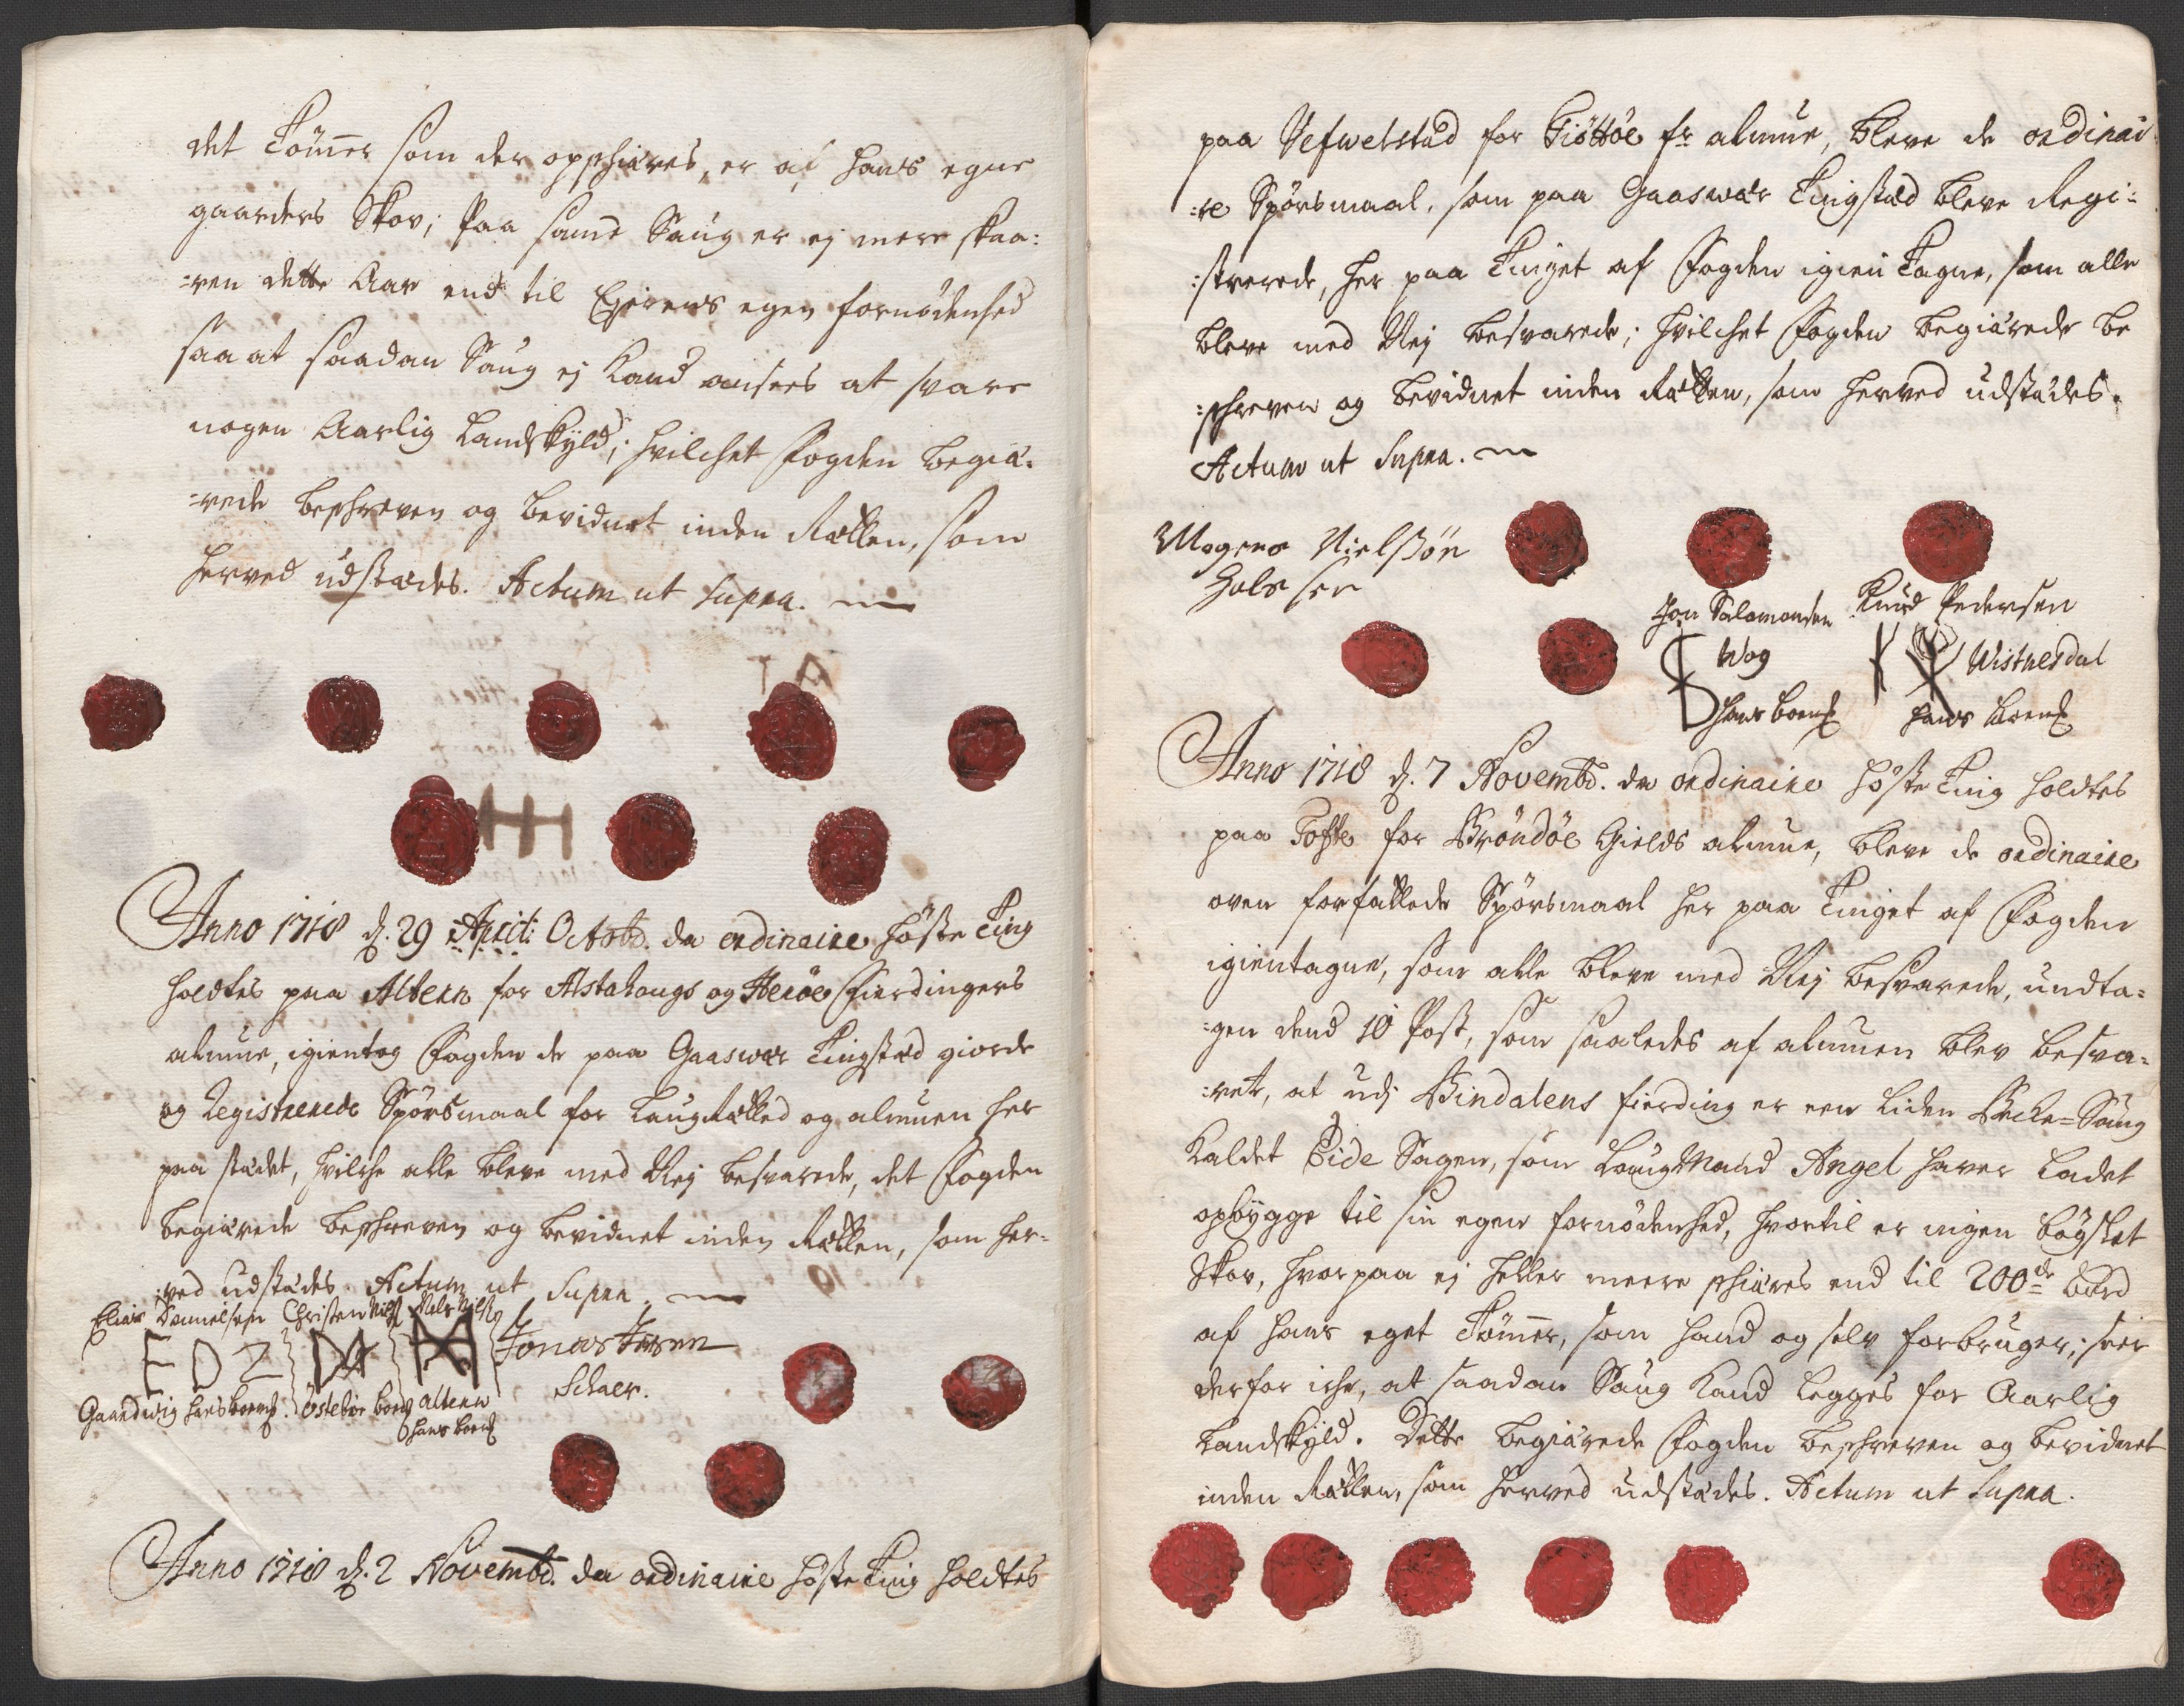 det Tömer som der opskiæres, er af hans egne
gaarders Skov; Paa samme Saug er ej mere skaa:
:ren dette Aar end til Ejerens egen fornödenhed
saa at saadan Saug ej kand ansees at svare
nogen Aarlig Landskÿld; hvilchet Fogden begiæ:
:rede beschreven og bevidnet inden Rætten, som
herved udstædes. Actum ut supra.
T A
H H
Anno 1718 d. 29 April: Octobr. da ordinaire höste Ting
holdtes paa Altern for Alstahougs og Heröe Fierdingers
almue, igientog Fogden de paa Gaaswær Tingstæd giorde
og Registrerede Spörsmaal for LaugRætted og almuen her
paa stædet, hvilche alle bleve med Nej besvarede, det Fogden
begiærede beschreven og bevidnet inden Rætten, som her:
:ved udstædes. Actum ut Supra.
Elias Danielsen Christen Nilss Nels Nilss
E D Z Jonas Jensen
Schaer.
Gaardwig hans boemk. Östeböe boemk altern
hans boemk
Anno 1718 d. 2 Novembr. da ordinaire höste Ting holdtes
paa Vefwelstad for Tiöttöe fr. almue, bleve de ordinai
:re Spörsmaal, som paa Gaaswær Tingstæd bleve Regi:
:strerede, her paa Tinget af Fogden igien Tagne, som alle
bleve med Nej besvarede; hvilchet Fogden begiærede be
:schreven og bevidnet inden Rætten, som herved udstædes.
Actum ut Supra.
Mogens Nielssön
Jon Salamonsen Knud Pedersen
Wog Wistnesdal
hans boemk hans boemk
Anno 1718 d. 7 Novembr. da ordinaire höste Ting holdtes
paa Tofte for Bröndöe Gields almue, bleve de ordinaire
oven forfattede Spörsmaal her paa Tinget af Fogden
igientagne, som alle bleve med Nej besvarede, undta:
:gen dend 10 Post, som saaledes af almuen blev besva:
:ret, at udj Bindalens fierding er een liden Becke=Saug
kaldet Eide Sagen, som LaugMand Angel haver ladet
opbÿgge til sin egen fornödenhed, hvortil er ingen böxlet
Skov, hvorpaa ej heller meere schiæres end til 200de bord
af hans eget Tömer, som hand og selv forbruger; seer
derfor iche, at saadan Saug kand legges for Aarlig
Landskÿld. Dette begiærede Fogden beschreven og bevidnet
inden Rætten, som herved udstædes. Actum ut supra.